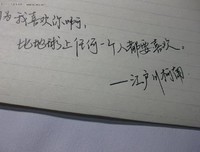 为我喜欢你啊,
比地球上任何一个人都要喜欢。
——江户川柯南